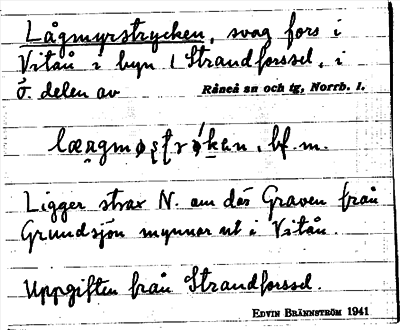 Lågmyrstrycken, svag fors i
Vitån i byn 1 Strandforssel, i
ö. delen av Råneå sn och tg, Norrb. l.
bf. m.
Ligger strax N. om där Graven från
Grundsjön mynnar ut i Vitån.
Uppgiften från Strandforssel.
EDVIN BRÄNNSTRÖM 1941